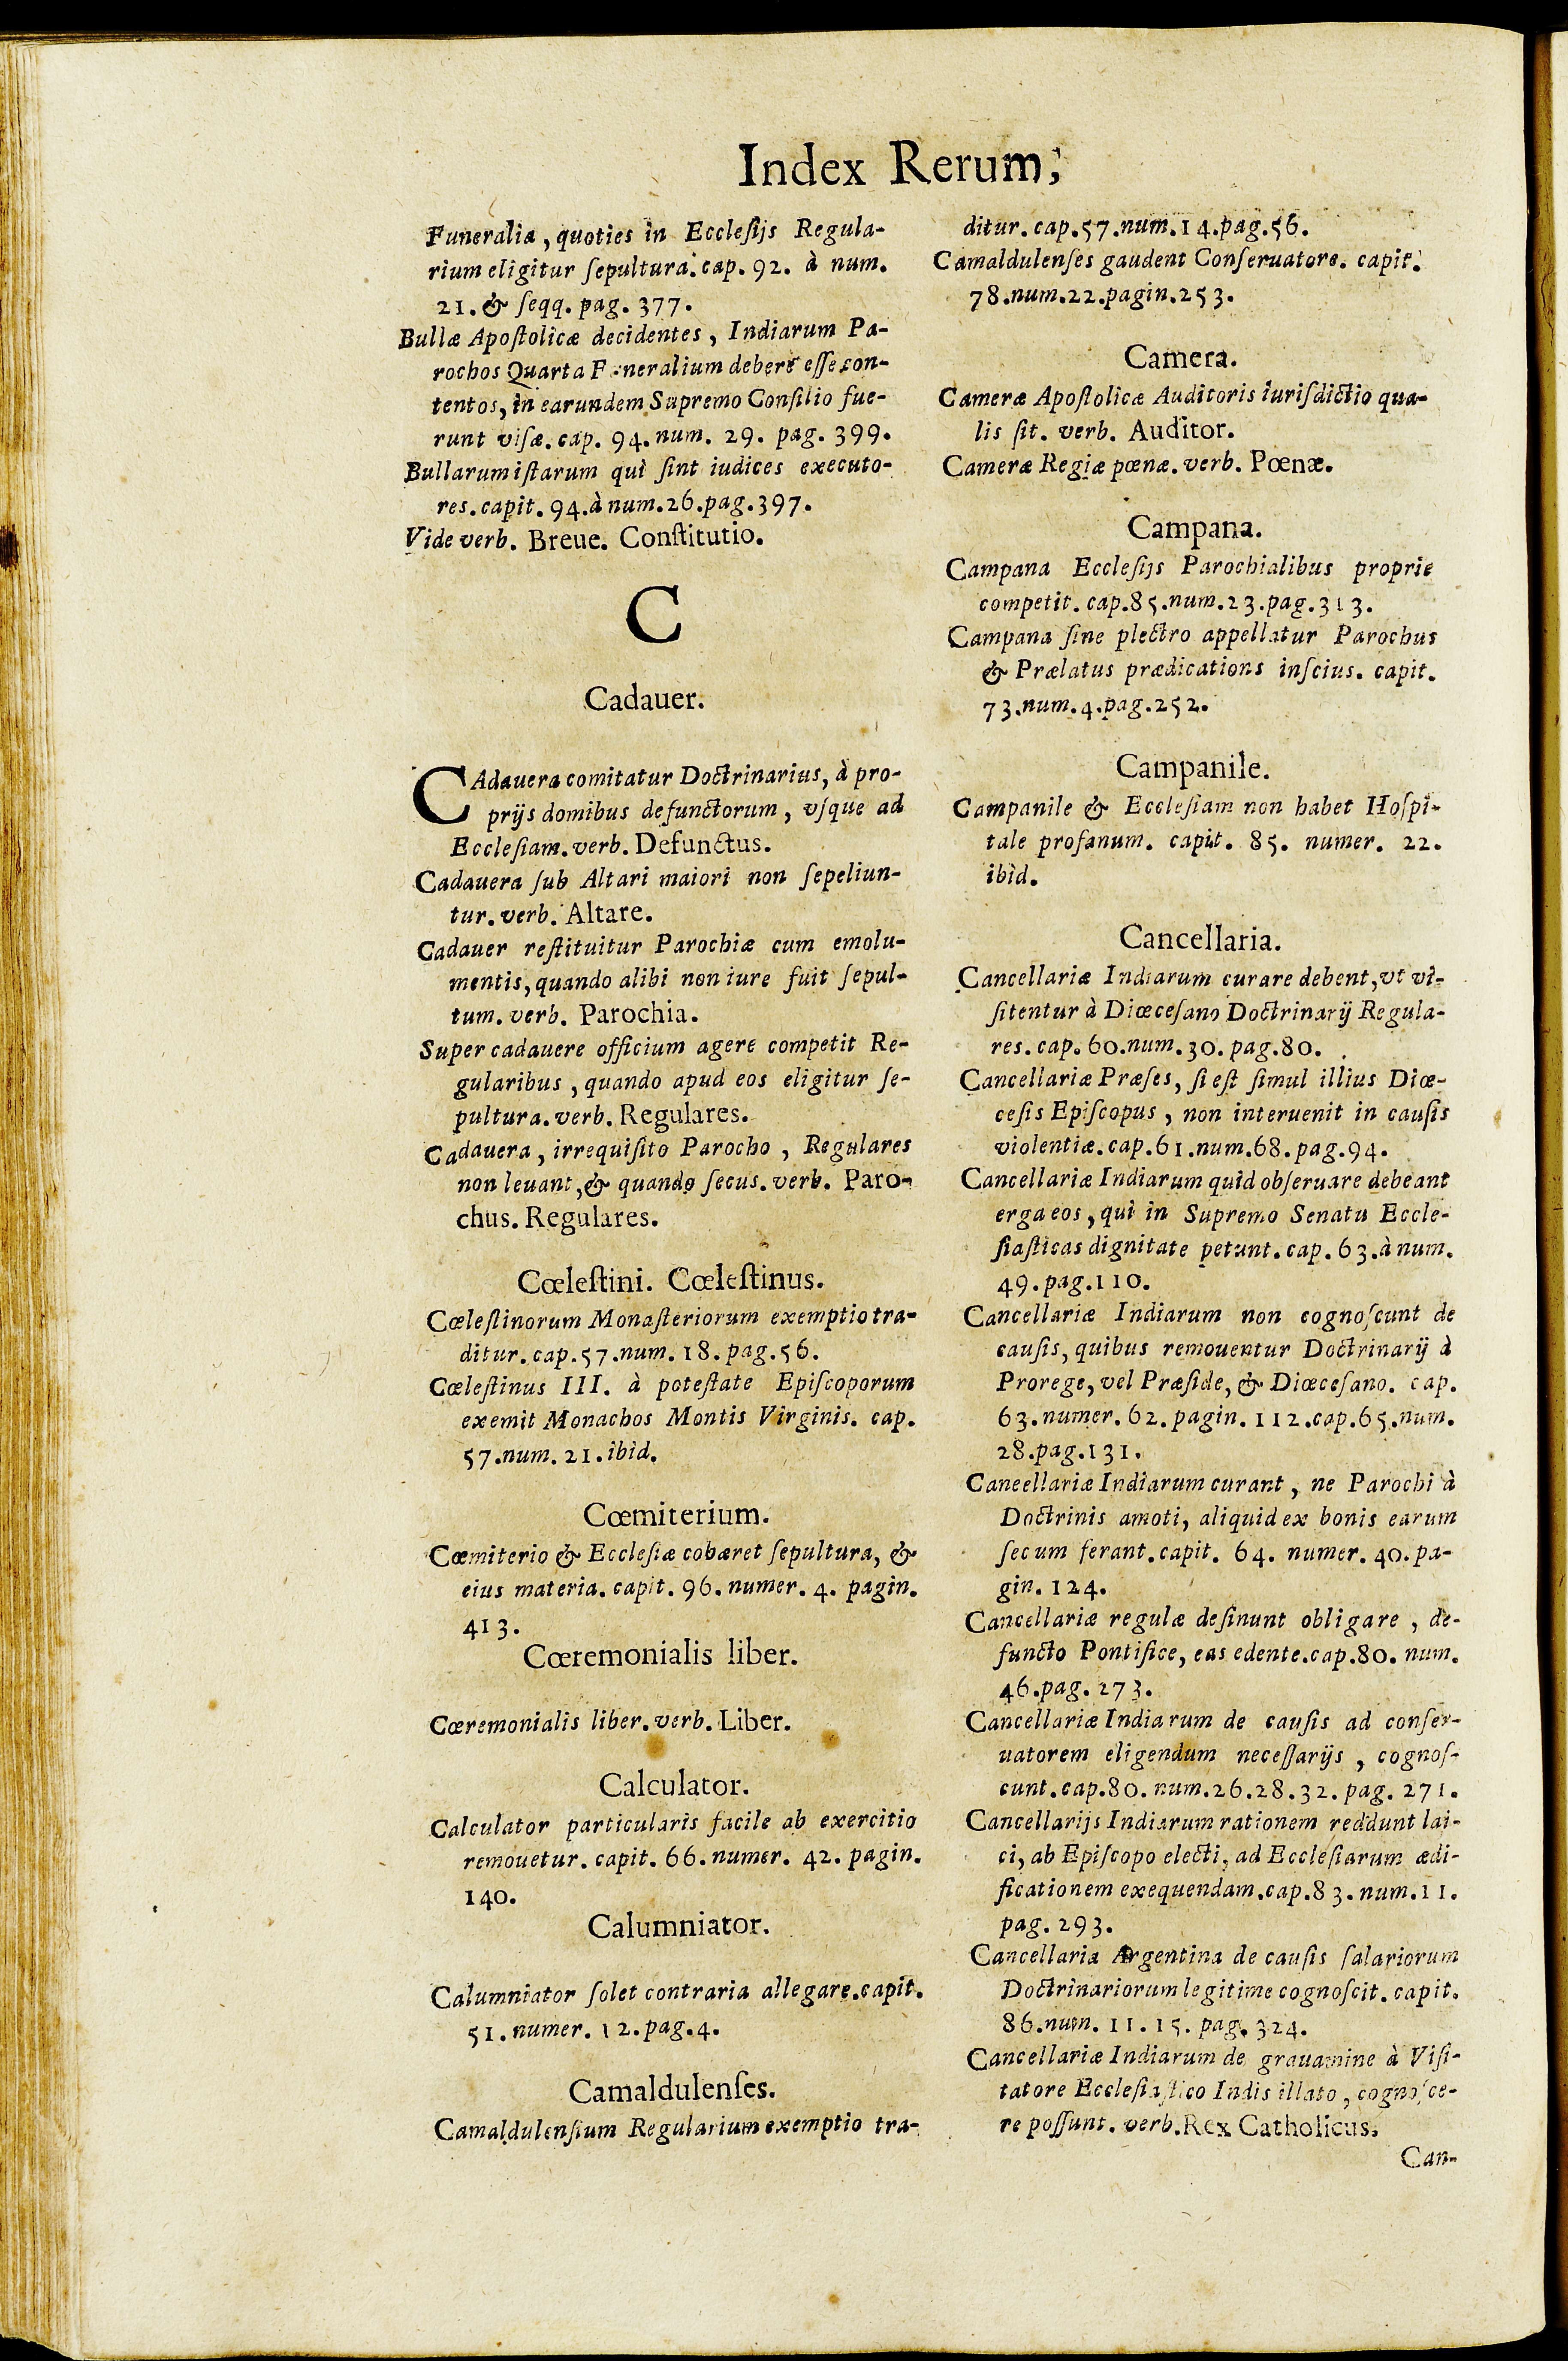 Index Rerum,
Funeralia, quoties in Ecclesijs Regula-
rium eligitur sepultura. cap. 92. à num.
21. & seqq. pag. 377.
Bullæ Apostolicæ decidentes, Indiarum Pa-
rochos Quarta Funeralium debere esse con-
tentos, in earundem Supremo Consilio fue-
runt visæ. cap. 94. num. 29. pag. 399.
Bullarum istarum qui sint iudices executo-
res. capit. 94. à num. 26. pag. 397.
Vide verb. Breue. Constitutio.
C
Cadauer.
CAdauera comitatur Doctrinarius, à pro-
prijs domibus defunctorum, vsque ad
Ecclesiam. verb. Defunctus.
Cadauera sub Altari maiori non sepeliun-
tur. verb. Altare.
Cadauer restituitur Parochiæ cum emolu-
mentis, quando alibi non iure fuit sepul-
tum. verb. Parochia.
Super cadauere officium agere competit Re-
gularibus, quando apud eos eligitur se-
pultura. verb. Regulares.
Cadauera, irrequisito Parocho, Regulares
non leuant, & quando secus. verb. Paro-
chus. Regulares.
Cœlestini. Cœlestinus.
Cœlestinorum Monasteriorum exemptio tra-
ditur. cap. 57. num. 18. pag. 56.
Cœlestinus III. à potestate Episcoporum
exemit Monachos Montis Virginis. cap.
57. num. 21. ibid.
Cœmiterium.
Cœmiterio & Ecclesiæ cohæret sepultura, &
eius materia. capit. 96. numer. 4. pagin.
413.
Cœremonialis liber.
Cœremonialis liber. verb. Liber.
Calculator.
Calculator particularis facile ab exercitio
remouetur. capit. 66. numer. 42. pagin.
140.
Calumniator.
Calumniator solet contraria allegare. capit.
51. numer. 12. pag. 4.
Camaldulenses.
Camaldulensium Regularium exemptio tra-
ditur. cap. 57. num. 14. pag. 56.
Camaldulenses gaudent Conseruatore. capit.
78. num. 22. pagin. 253.
Camera.
Cameræ Apostolicæ Auditoris iurisdictio qua-
lis sit. verb. Auditor.
Cameræ Regiæ pœnæ. verb. Pœnæ.
Campana.
Campana Ecclesijs Parochialibus proprie
competit. cap. 85. num. 23. pag. 313.
Campana sine plectro appellatur Parochus
& Prælatus prædications inscius. capit.
73. num. 4. pag. 252.
Campanile.
Campanile & Ecclesiam non habet Hospi-
tale profanum. capit. 85. numer. 22.
ibid.
Cancellaria.
Cancellariæ Indiarum curare debent, vt vi-
sitentur à Diœcesano Doctrinarij Regula-
res. cap. 60. num. 30. pag. 80.
Cancellariæ Præses, si est simul illius Diœ-
cesis Episcopus, non interuenit in causis
violentiæ. cap. 61. num. 68. pag. 94.
Cancellariæ Indiarum quid obseruare debeant
erga eos, qui in Supremo Senatu Eccle-
siasticas dignitate petunt. cap. 63. à num.
49. pag. 110.
Cancellariæ Indiarum non cognoscunt de
causis, quibus remouentur Doctrinarij à
Prorege, vel Præside, & Diœcesano. cap.
63. numer. 62. pagin. 112. cap. 65. num.
28. pag. 131.
Caneellariæ Indiarum curant, ne Parochi à
Doctrinis amoti, aliquid ex bonis earum
secum ferant. capit. 64. numer. 40. pa-
gin. 124.
Cancellariæ regulæ desinunt obligare, de-
functo Pontifice, eas edente. cap. 80. num.
46. pag. 273.
Cancellariæ Indiarum de causis ad conser-
uatorem eligendum necessarijs, cognos-
cunt. cap. 80. num. 26. 28. 32. pag. 271.
Cancellarijs Indiarum rationem reddunt lai-
ci, ab Episcopo electi, ad Ecclesiarum ædi-
ficationem exequendam. cap. 83. num. 11.
pag. 293.
Cancellaria Argentina de causis salariorum
Doctrinariorum legitime cognoscit. capit.
86. num. 11. 15. pag. 324.
Cancellariæ Indiarum de grauamine à Visi-
tatore Ecclesiastico Indis illato, cognosce-
re possunt. verb. Rex Catholicus.
Can-